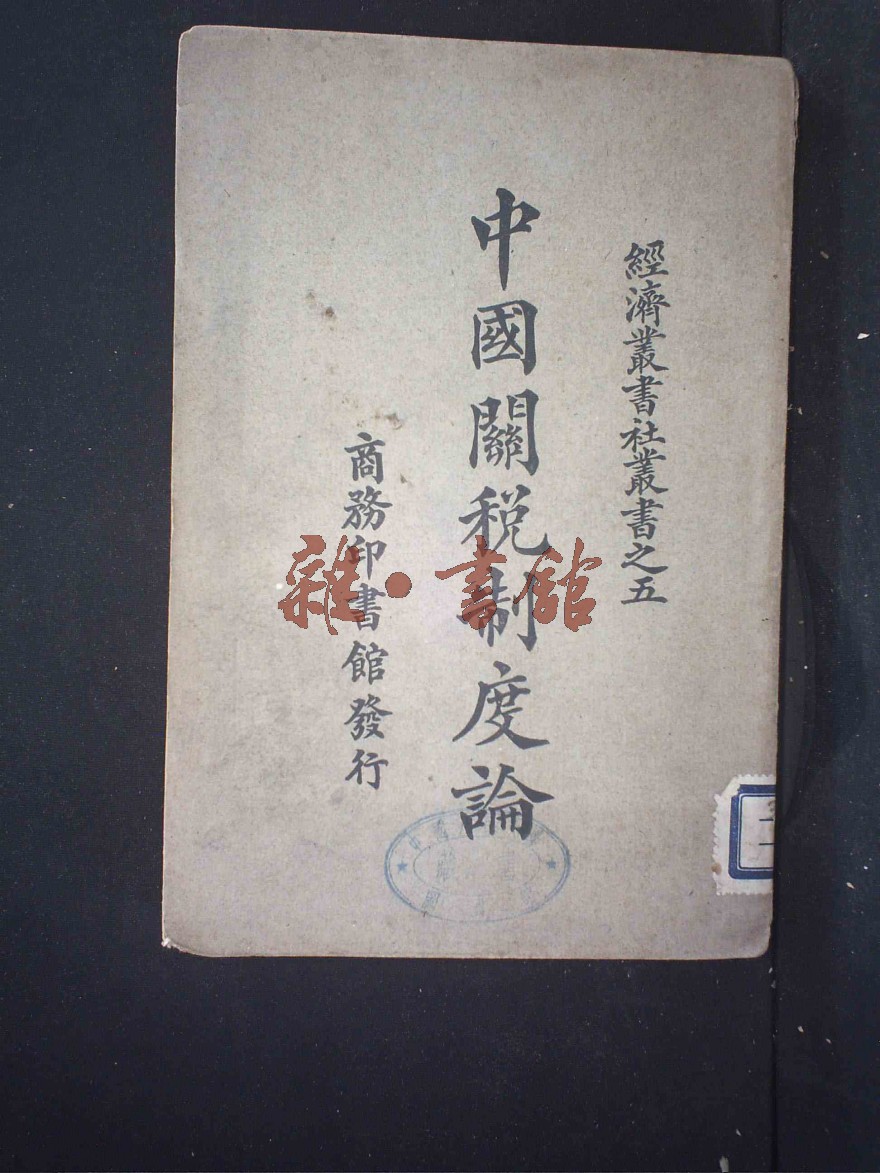 經濟叢書社叢書之五
中國關税制度論
商務印書館發行
雜·書館